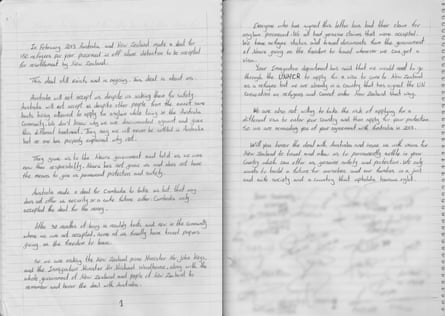 In February 2013 Australia and New Zealand made a deal for
150 refugees per year processed in off shore detention to be accepted
for resettlement by New Zealand.
This deal still exists and is ongoing. This deal is about us.
Australia will not accept us despite us asking them for safety.
Australia will not accept us despite other people from the exact same
boats being allowed to apply for asylum while living in the Australian
Community. We don't know why we are discriminated against and given
this different treatment. They say we will never be settled in Australia
but no one has properly explained why not.
They gave us to the Nauru government and told us we are
now their responsibility. Nauru has not given us and does not have
the means to give us permanent protection and safety.
Australia made a deal for Cambodia to take us but that way
does not offer us security or a safe future either. Cambodia only
accepted the deal for the money.
After 30 months of being in mouldy tents and now in the community
where we are not accepted, some of us finally have travel papers
giving us the freedom to leave.
So we are asking the New Zealand prime Minister Mr John Key,
and the Immigration Minister Mr Michael Woodhouse, along with the
whole government of New Zealand and people of New Zealand to
remember and honor the deal with Australia.
1
Everyone who has signed this letter has had their claim for
asylum processed. We all had genuine claims that were accepted.
We have refugee status and travel documents from the government
of Nauru giving us the freedom to travel wherever we can get a
visa.
Your Immigration department has said that we would need to go
through the UNHCR to apply for a visa to come to New Zealand
as a refugee but we are already in a country that has signed the UN
convention on refugees and cannot enter New Zealand that way.
We are also not willing to take the risk of applying for a
different visa to enter your country and then apply for your protection.
So we are reminding you of your agreement with Australia in 2013.
Will you honor the deal with Australia and issue us with visas for
New Zealand to travel and allow us to permanently settle in your
Country which can offer us genuine safety and protection. We only
want to build a future for ourselves and our families in a just
and safe society and a country that upholds human right.